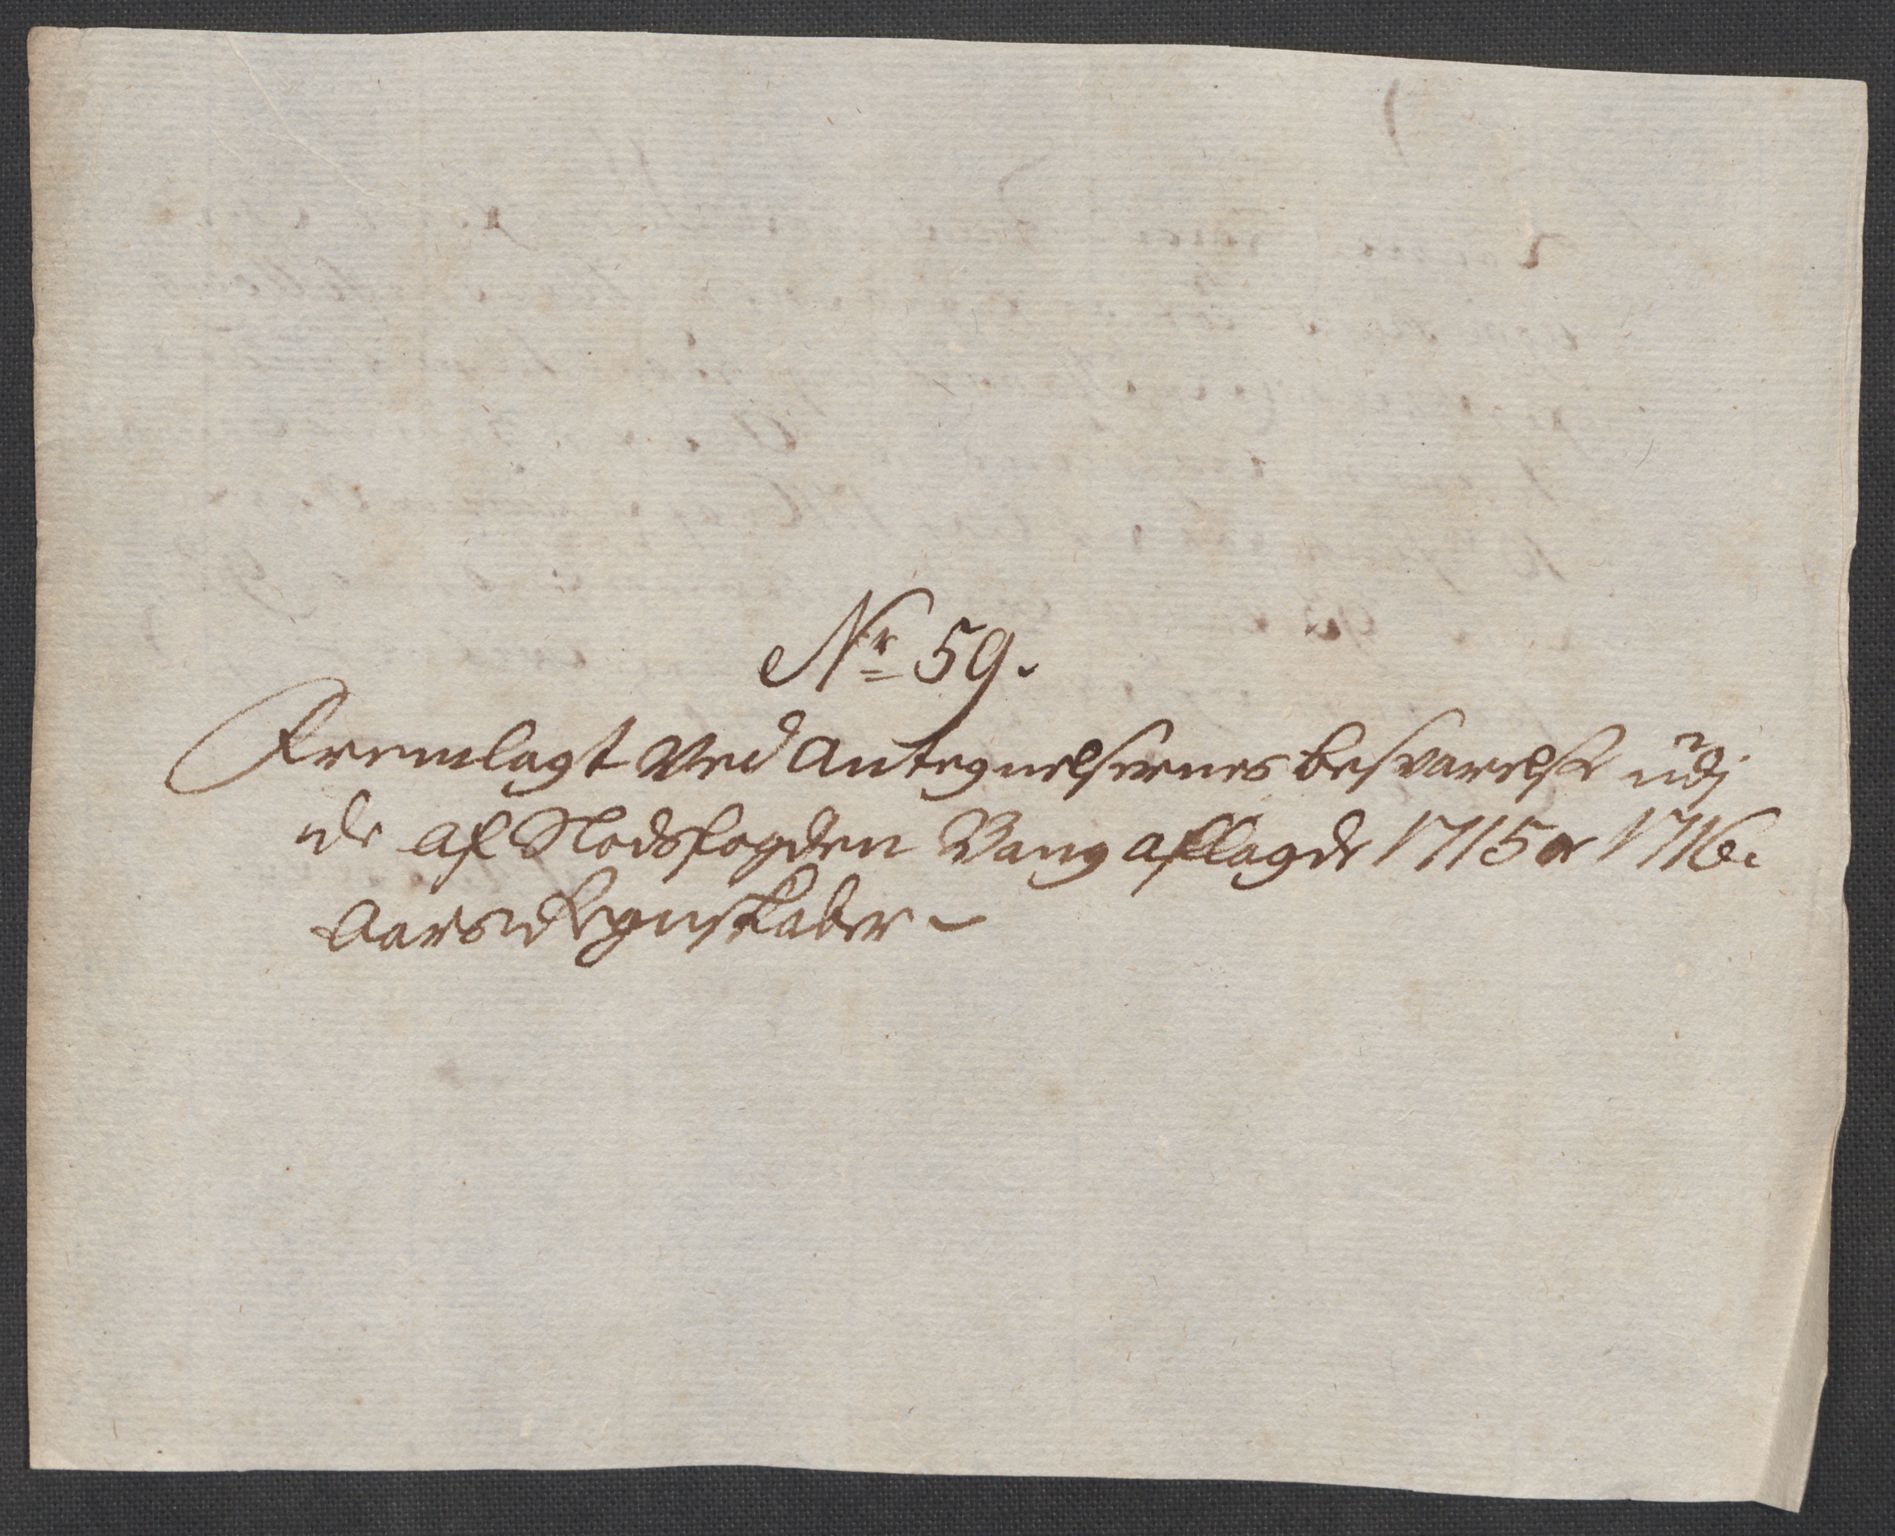 Nr 59.
Fremlagt Ved Antegnelsernes besvarelse udj
de af Slodsfogden Bang aflagde 1715 & 1716.
Aars Regnskaber –